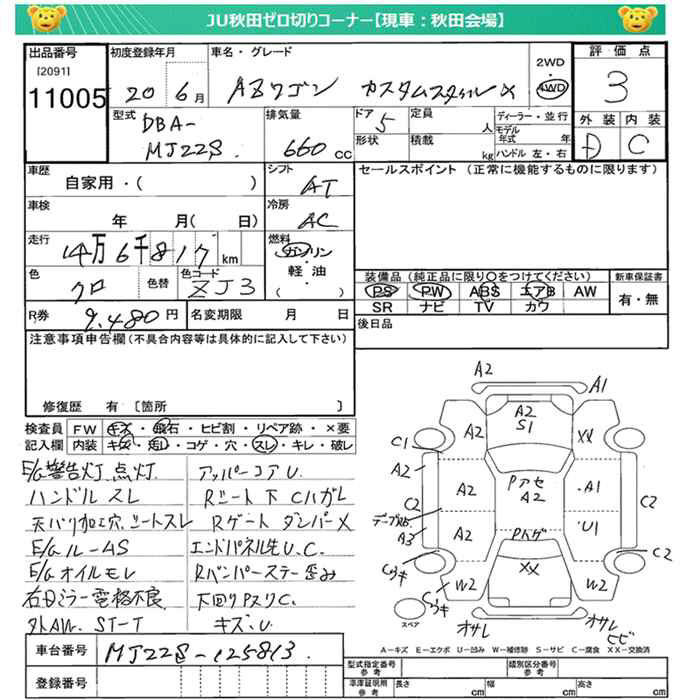 JU秋田ゼロ切りコーナー【現車：秋田会場】
出品番号
[2091]
11005
初度登録年月
20 6月
車名・グレード
AZワゴン カスタムスタイルX
2WD
4WD
評価点
3
型式
DBA-
MJ22S
排気量
660 cc
ドア
5
形状
定員
人
積載
kg
ディーラー・並行
モデル
年式 年
ハンドル 左・右
外装 内装
D C
車歴
自家用・( )
シフト
AT
セールスポイント (正常に機能するものに限ります)
車検
年 月( 日)
冷房
AC
走行
14万6千817 km
燃料
ガソリン
・
軽・油
( )
色
クロ
色替
色コード
ZJ3
装備品 (純正品に限り○をつけてください)
PS PW ABS エアB AW
SR ナビ TV カワ
新車保証書
有・無
R券
9,480 円
名変期限 月 日
後日品
注意事項申告欄(不具合内容等は具体的に記入して下さい)
修復歴 有 〔箇所 〕
検査員
記入欄
FW キズ・飛石・ヒビ割・リペア跡・×要
内装 キズ・汚レ・コゲ・穴・スレ・キレ・破レ
E/G警告灯点灯
ハンドル スレ
天バリ加工穴.シートスレ
E/Gル-AS
E/Gオイルモレ
右ドミラー電格不良
外AW. ST-T
アッパーコアU.
Rシート下 Cハガレ
Rゲート ダンパー×
エンドパネル先U.C.
Rバンパーステー歪み
下回りPスリC.
キズ.U.
A2
A1
A2
S1
A2
XX
C1
A2
A2
Pアセ
A2
A1
C2
C2
テープ跡
A3
A2
Pハゲ
U1
XX
C2
Cフキ
Cフキ
W2
W2
スペア
オサレ
オサレ
ヒビ
A－キズ E－エクボ U－凹み W－補修跡 S－サビ C－腐食 XX－交換済
車台番号
MJ22S-125813.
登録番号
型式指定番号
参考
類別区分番号
参考
車庫証明用
参考
長さ cm
幅 cm
高さ cm